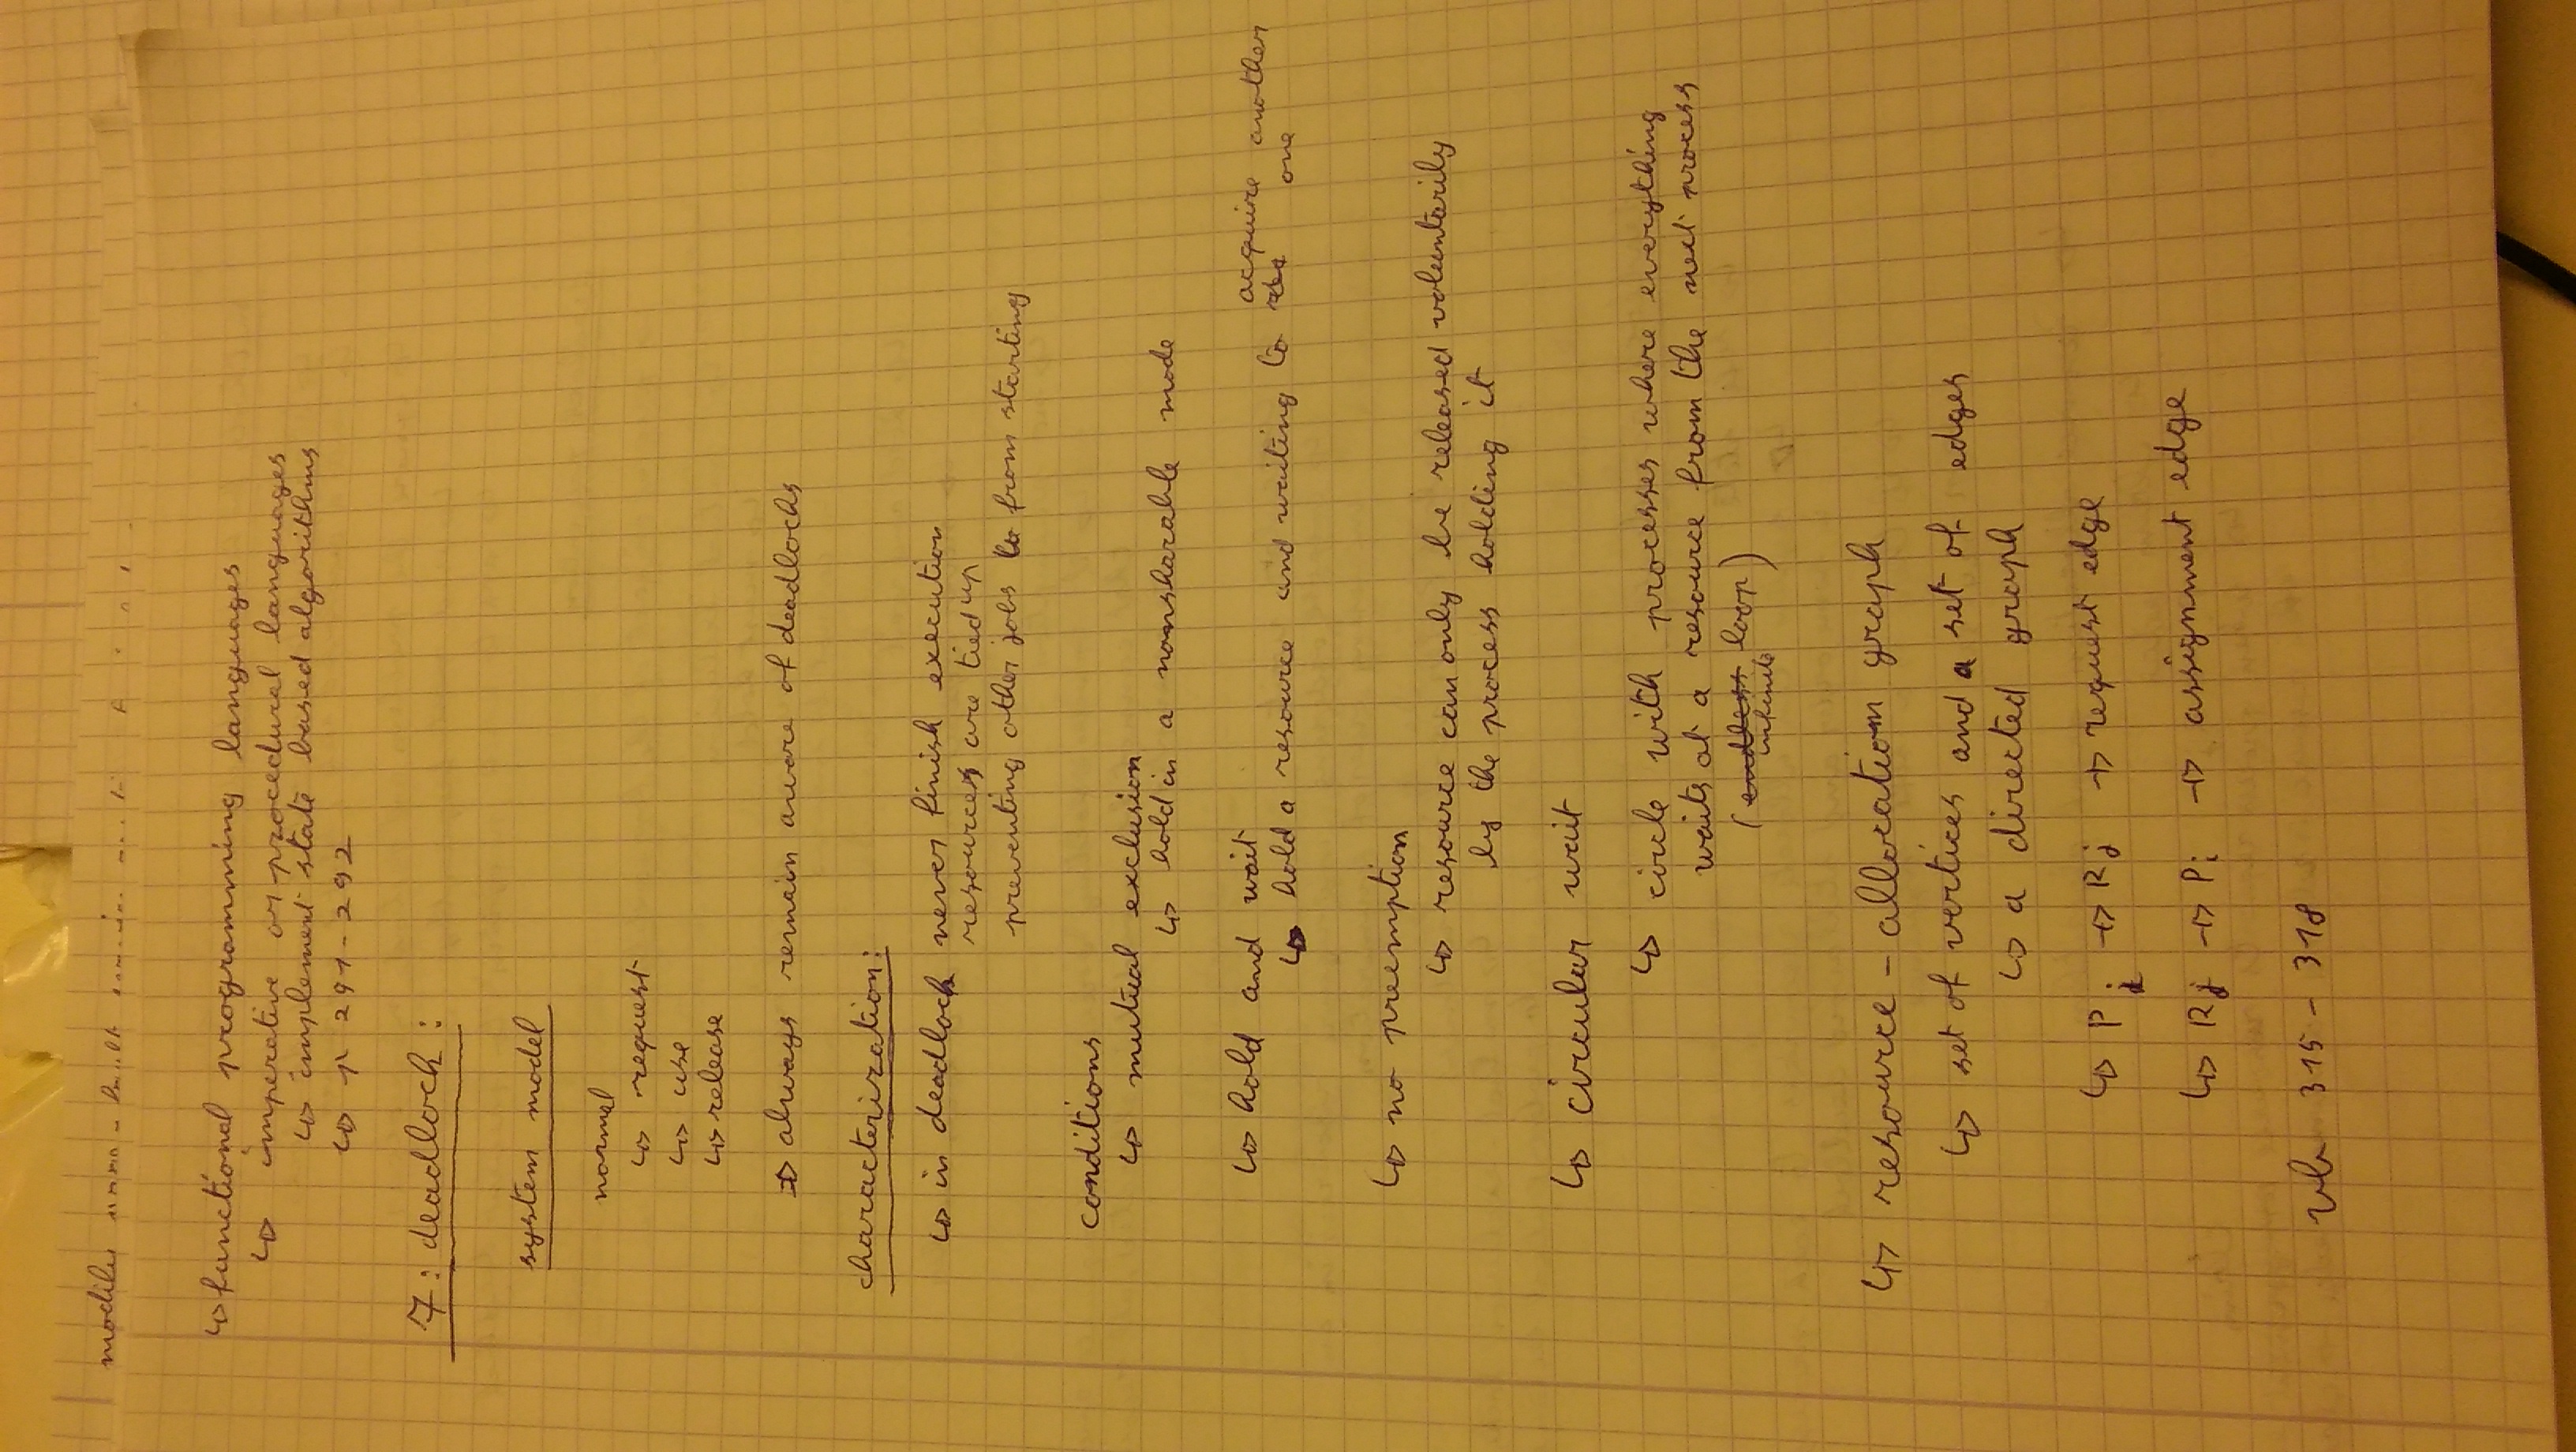 ↳ functional programming languages
↳ imperative or procedural languages
↳ implement state based algorithms
↳ p 291-292
7: deadlock:
system model
normal
↳ request
↳ use
↳ release
⇒ always remain aware of deadlocks
characterization:
↳ in deadlock never finish execution
resources are tied up
preventing other jobs from starting
conditions
↳ mutual exclusion
↳ hold in a nonsharable mode
↳ hold and wait
↳ hold a resource and waiting to acquire another one
↳ no preemption
↳ resource can only be released voluntarily
by the process holding it
↳ circular wait
↳ circle with processes where everything
waits at a resource from the next process
(endless infinite loop)
↳ resource - allocation graph
↳ set of vertices and a set of edges
↳ a directed graph
↳ Pi → Rj → request edge
↳ Rj → Pi → assignment edge
vb 315 - 318